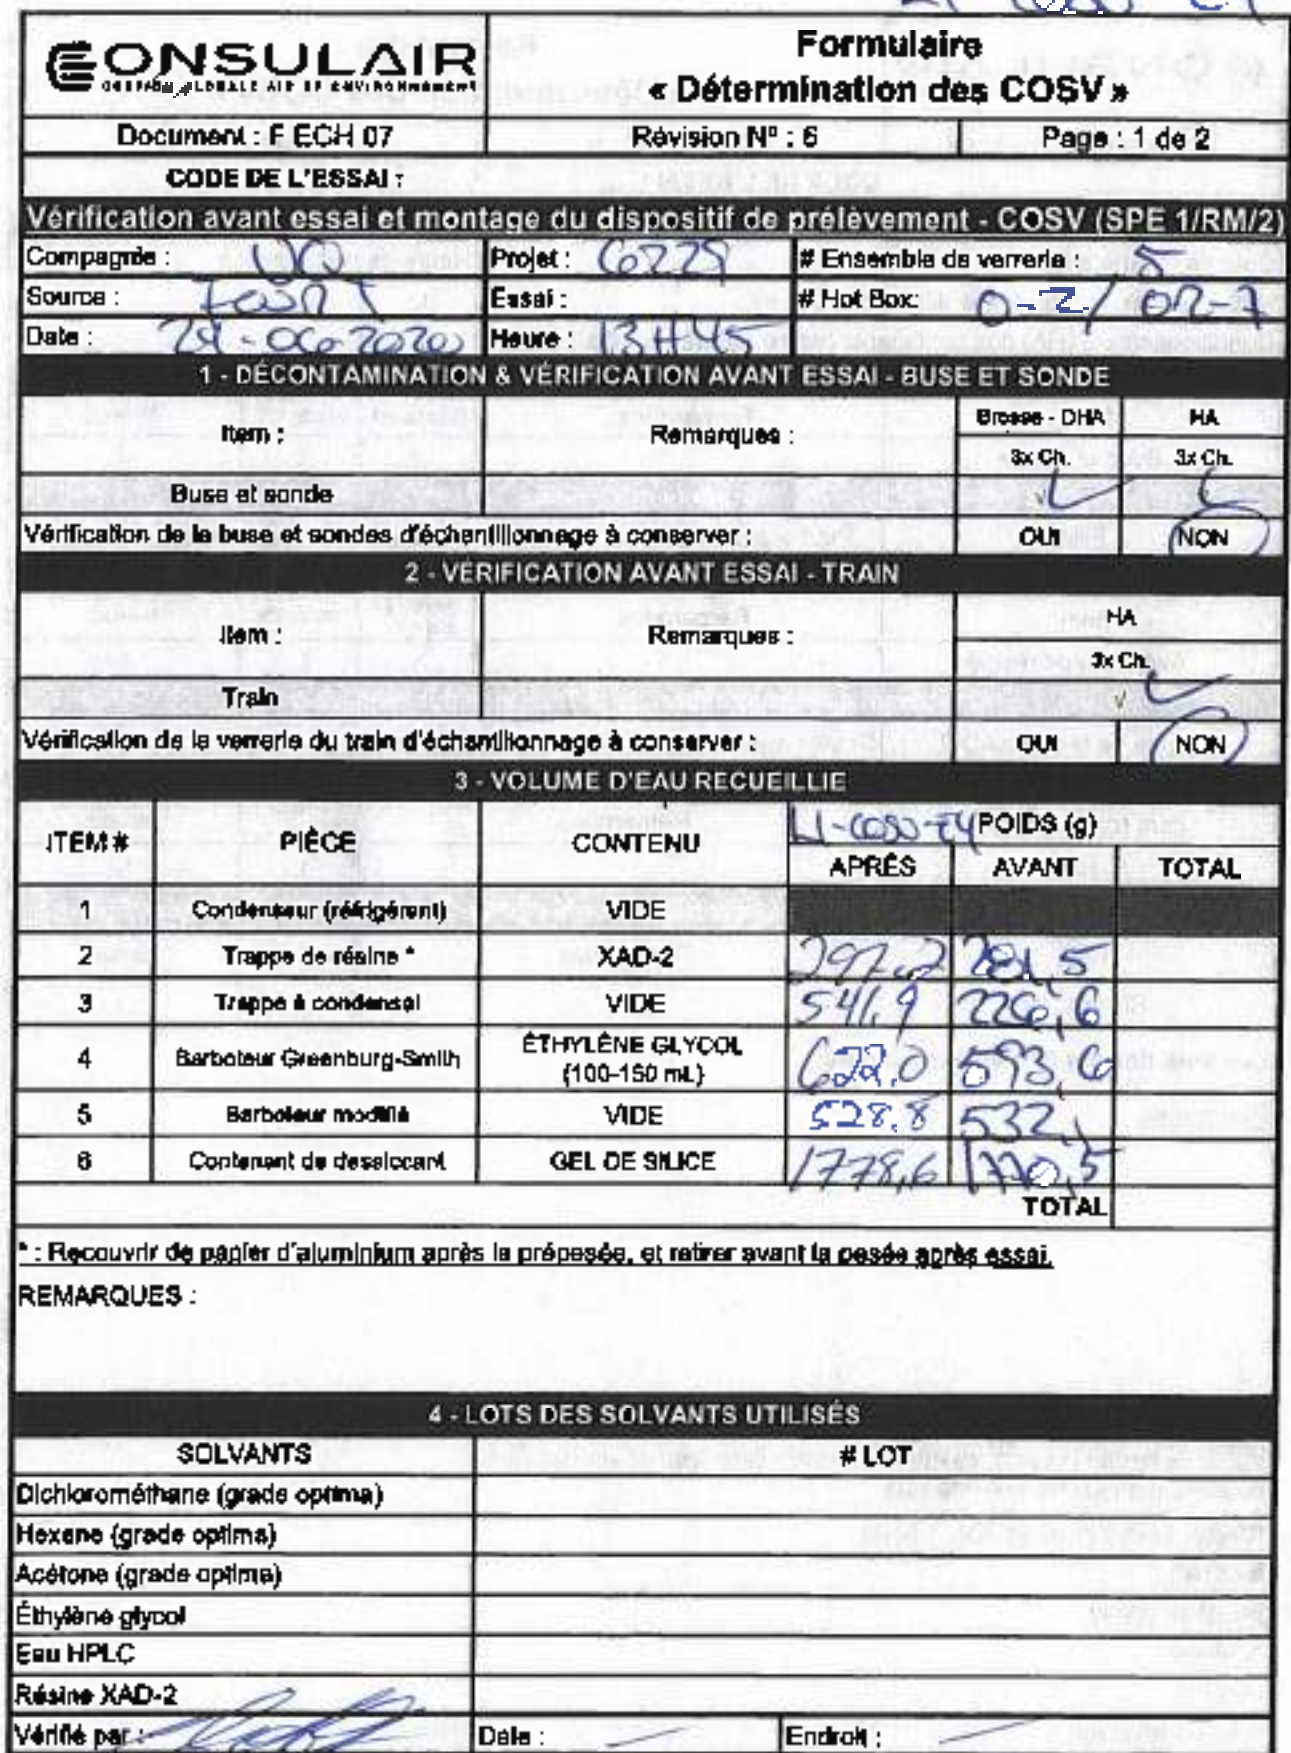 CONSULAIR
Formulaire
« Détermination des COSV »
Document : F ECH 07
Révision Nº : 6
Page : 1 de 2
CODE DE L'ESSAI :
Vérification avant essai et montage du dispositif de prélèvement - COSV (SPE 1/RM/2)
Compagnie : UQ Projet : 6229 # Ensemble de verrerie : 5
Source : Essai : # Hot Box: 0-2 / 02-7
Date : 24-06-2020 Heure : 13H45
1 - DÉCONTAMINATION & VÉRIFICATION AVANT ESSAI - BUSE ET SONDE
Item : Remarques : Brosse - DHA HA
3x Ch. 3x Ch.
Buse et sonde √ √
Vérification de la buse et sondes d'échantillonnage à conserver : OUI NON
2 - VÉRIFICATION AVANT ESSAI - TRAIN
Item : Remarques : HA
3x Ch.
Train √
Vérification de la verrerie du train d'échantillonnage à conserver : OUI NON
3 - VOLUME D'EAU RECUEILLIE
ITEM # PIÈCE CONTENU POIDS (g)
APRÈS AVANT TOTAL
1 Condenseur (réfrigérant) VIDE
2 Trappe de résine * XAD-2 297,2 281,5
3 Trappe à condensat VIDE 541,9 226,6
4 Barboteur Greenburg-Smith ÉTHYLÈNE GLYCOL (100-150 mL) 622,0 593,6
5 Barboteur modifié VIDE 528,8 532,1
6 Contenant de dessiccant GEL DE SILICE 1778,6 1770,5
TOTAL
* : Recouvrir de papier d'aluminium après la prépesée, et retirer avant la pesée après essai.
REMARQUES :
4 - LOTS DES SOLVANTS UTILISÉS
SOLVANTS # LOT
Dichlorométhane (grade optima)
Hexane (grade optima)
Acétone (grade optima)
Éthylène glycol
Eau HPLC
Résine XAD-2
Vérifié par : Date : Endroit :